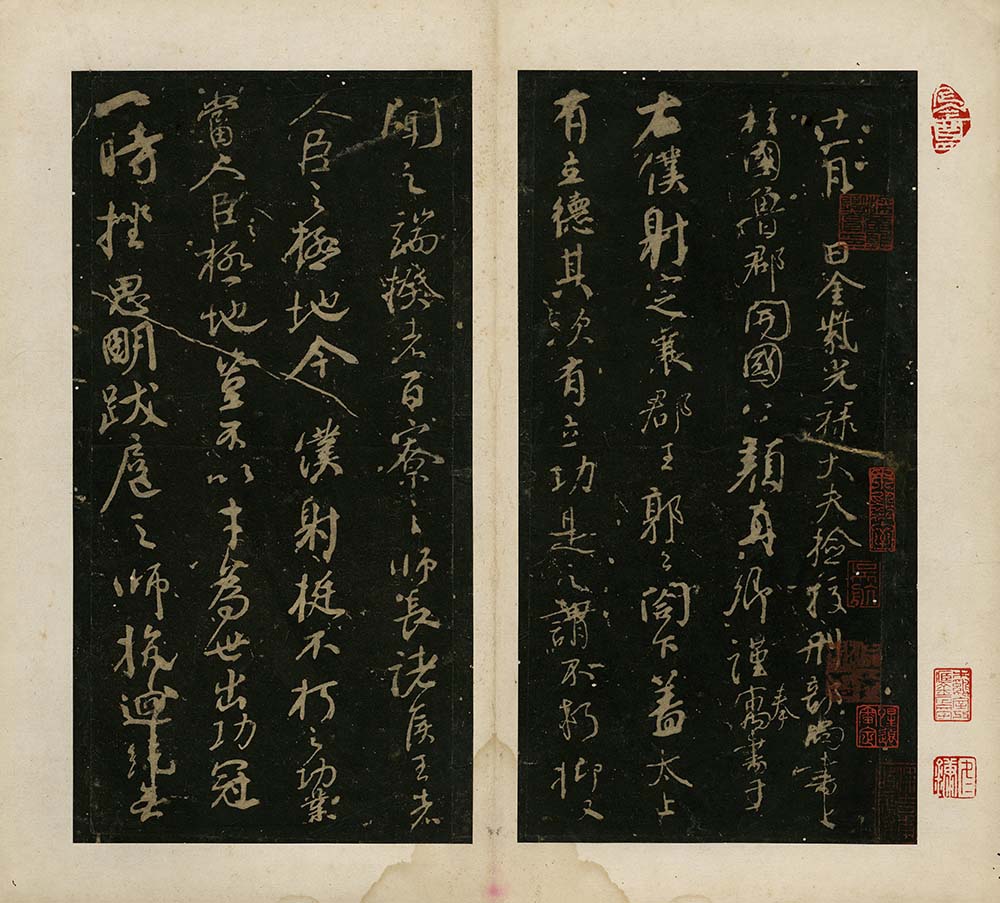 十一月　日金紫光祿大夫檢校刑部尚書上
柱國魯郡開國公顏真卿謹奉寓書于
右僕射定襄郡王郭公閤下蓋太上
有立德其次有立功是之謂不朽抑又
聞之端揆者百寮之師長諸侯王者
人臣之極地今僕射挺不朽之功業
當人臣之極地豈不以才為世出功冠
一時挫思明跋扈之師抗迴紇無